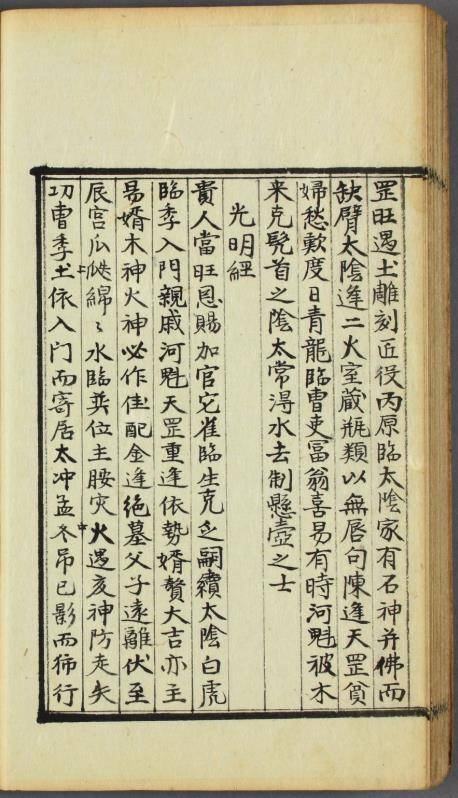 罡旺遇土雕刻匠役丙原臨太陰家有石神并佛而
缺臂太陰逢二火室蔵瓶類以無唇句陳逢天罡貧
婦愁歎度日青龍臨曹吏冨翁喜易有時河魁被木
来克髡首之陰太常淂水去制懸壺之士
光明經
貴人當旺恩賜加官它雀臨生克乏嗣續太陰白虎
臨季入門親戚河魁天罡重逢依勢婿贅大吉亦主
易婿木神火神必作佳配金逢絕墓父子遠離伏至
辰宫瓜瓞綿〻水臨英位主腰灾火遇亥神防走失
功曹季土依入门而寄居太冲孟冬吊已影而獨行